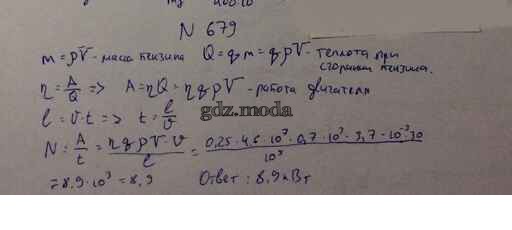 N 679
m = ρV - маса бензина Q = qm = qρV - теплота при
сгорании бензина.
η = A/Q => A = ηQ = ηqρV - работа двигателя
l = v·t => t = l/v
gdz.moda
N = A/t = ηqρV·v/l = 0,25·4,6·10⁷·0,7·10³·3,7·10⁻³·30/10⁵
= 8,9·10³ = 8,9 Ответ: 8,9 кВт